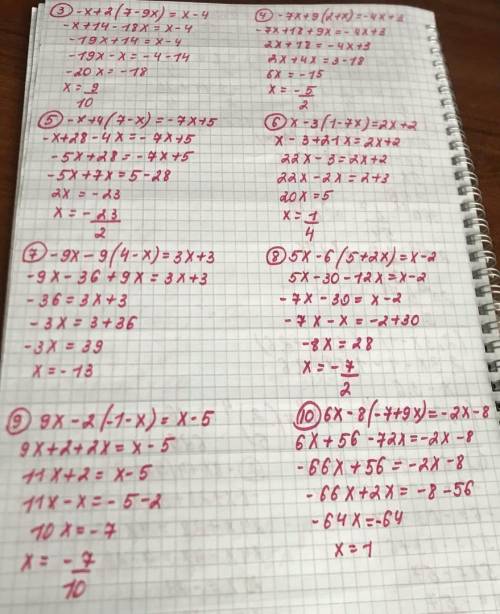 ③ -x+2(7-9x)=x-4
-x+14-18x=x-4
-19x+14=x-4
-19x-x=-4-14
-20x=-18
x=9/10
④ -7x+9(2+x)=-4x+3
-7x+18+9x=-4x+3
2x+18=-4x+3
2x+4x=3-18
6x=-15
x=-5/2
⑤ -x+4(7-x)=-7x+5
-x+28-4x=-7x+5
-5x+28=-7x+5
-5x+7x=5-28
2x=-23
x=-23/2
⑥ x-3(1-7x)=2x+2
x-3+21x=2x+2
22x-3=2x+2
22x-2x=2+3
20x=5
x=1/4
⑦ -9x-9(4-x)=3x+3
-9x-36+9x=3x+3
-36=3x+3
-3x=3+36
-3x=39
x=-13
⑧ 5x-6(5+2x)=x-2
5x-30-12x=x-2
-7x-30=x-2
-7x-x=-2+30
-8x=28
x=-7/2
⑨ 9x-2(-1-x)=x-5
9x+2+2x=x-5
11x+2=x-5
11x-x=-5-2
10x=-7
x=-7/10
⑩ 6x-8(-7+9x)=-2x-8
6x+56-72x=-2x-8
-66x+56=-2x-8
-66x+2x=-8-56
-64x=-64
x=1